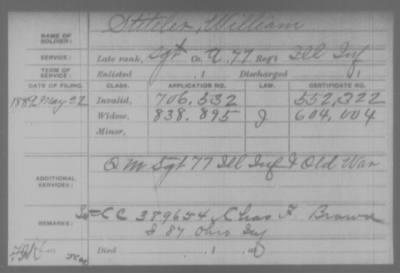 NAME OF SOLDIER: Stateler, William
SERVICE: Late rank, Sgt Co. A, 77 Reg't Ill Inf
TERM OF SERVICE: Enlisted , 1 Discharged , 1
DATE OF FILING. CLASS. APPLICATION NO. LAW. CERTIFICATE NO.
1889 May 22 Invalid, 706,532 552,322
Widow, 838,895 J 604,004
Minor,
ADDITIONAL SERVICES: Q M Sgt 77 Ill Inf & Old War
REMARKS: C C 389654, Chas F. Brown
I 87 Ohio Inf
Died , 1 , at